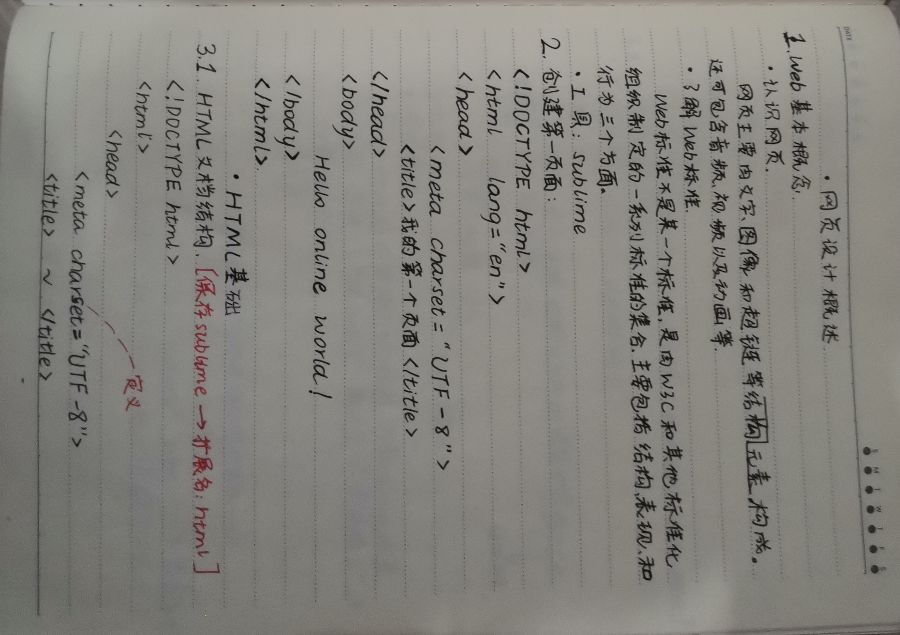 DATE
S M T W T F S
• 网页设计概述
1. Web基本概念.
• 认识网页.
网页主要由文字、图像和超链等结构元素构成。
还可包含音频、视频以及动画等.
• 了解Web标准.
Web标准不是某一个标准,是由W3C和其他标准化
组织制定的一系列标准的集合.主要包括结构、表现、和
行为三个方面。
• 工具: sublime
2. 创建第一页面:
<!DOCTYPE html>
<html lang="en">
<head>
<meta charset="UTF-8">
<title>我的第一个页面</title>
</head>
<body>
Hello online world!
</body>
</html>.
• HTML基础
3.1 HTML文档结构. [保存sublime → 扩展名: html]
<!DOCTYPE html>
<html>
<head>
定义
<meta charset="UTF-8">
<title> ~ </title>